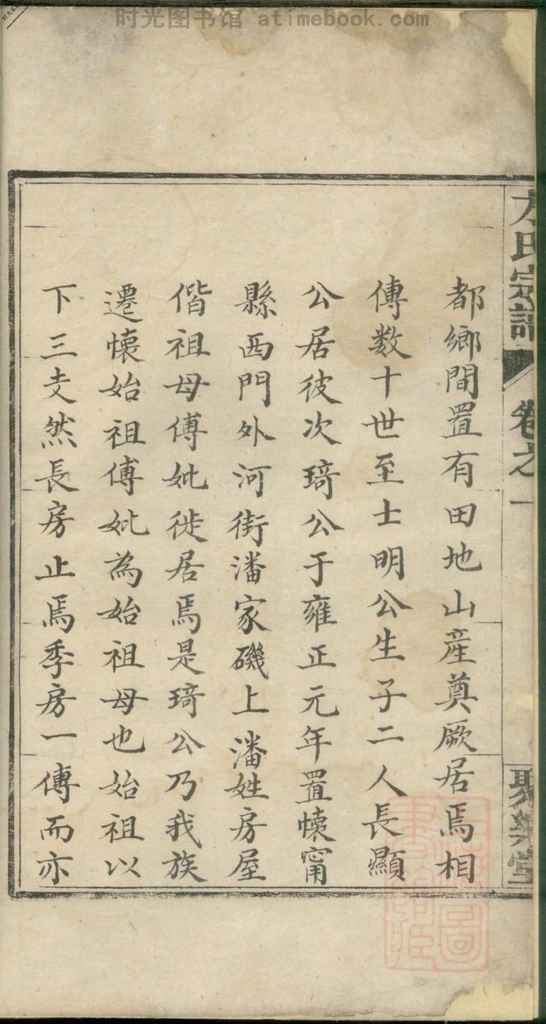 时光图书馆 atimebook.com
方氏宗譜 卷之一 聚樂堂
都鄉間置有田地山産奠厥居焉相
傳数十世至士明公生子二人長顯
公居彼次琦公于雍正元年置懐甯
縣西門外河街潘家磯上潘姓房屋
偕祖母傅妣徙居焉是琦公乃我族
遷懐始祖傅妣為始祖母也始祖以
下三支然長房止焉季房一傳而亦